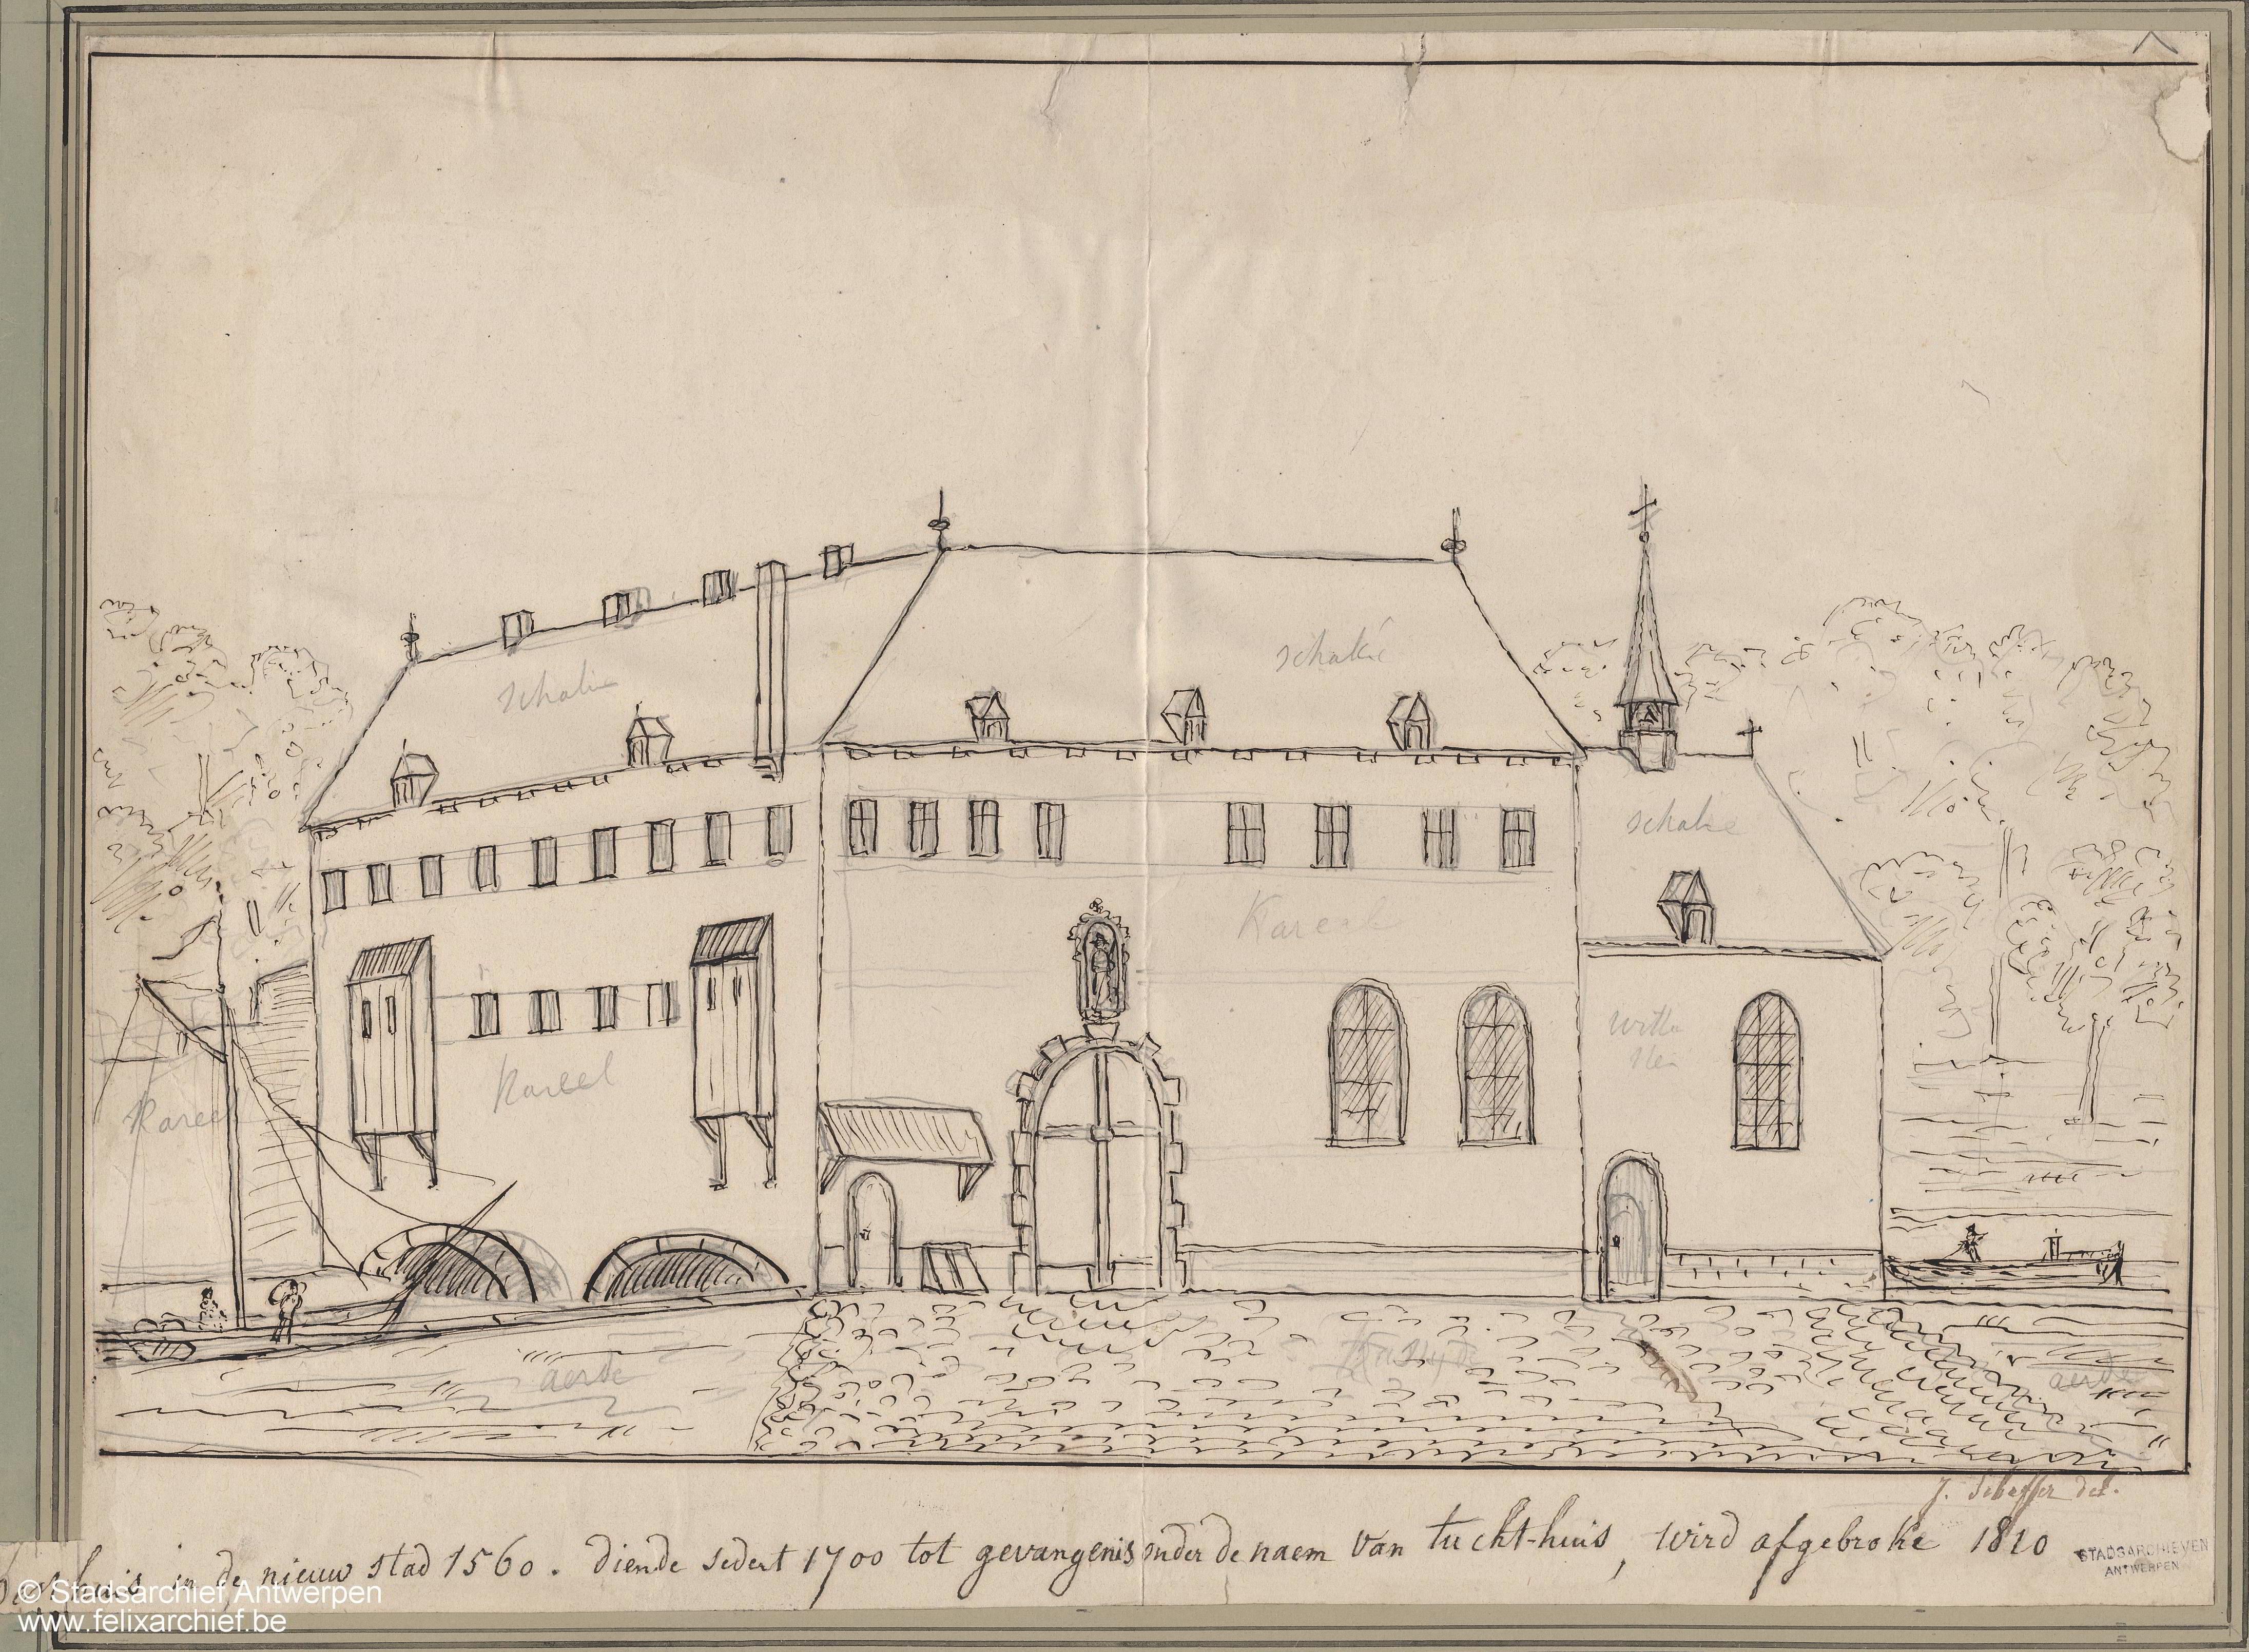 schalie
schalie
schalie
Kareel
Kareel
Kareel
aerde
aerde
J. Scheffer del.
huis in de nieuw stad 1560. diende sedert 1700 tot gevangenis onder de naem van tucht-huis, wird afgebroke 1810
STADSARCHIEVEN
ANTWERPEN
© Stadsarchief Antwerpen
www.felixarchief.be